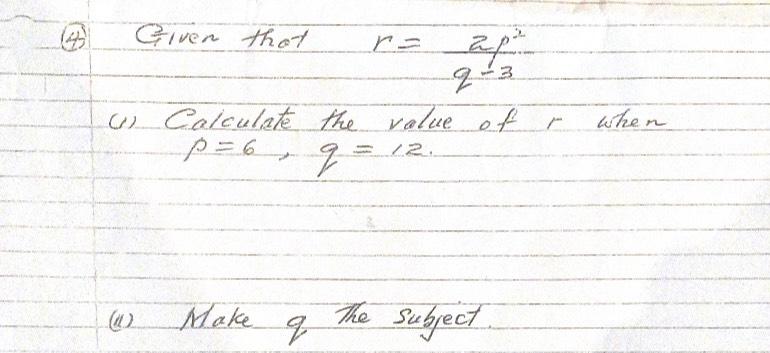 ④ Given that r = 2p²
q-3
(i) Calculate the value of r when
p = 6 , q = 12.
(ii) Make q the subject.